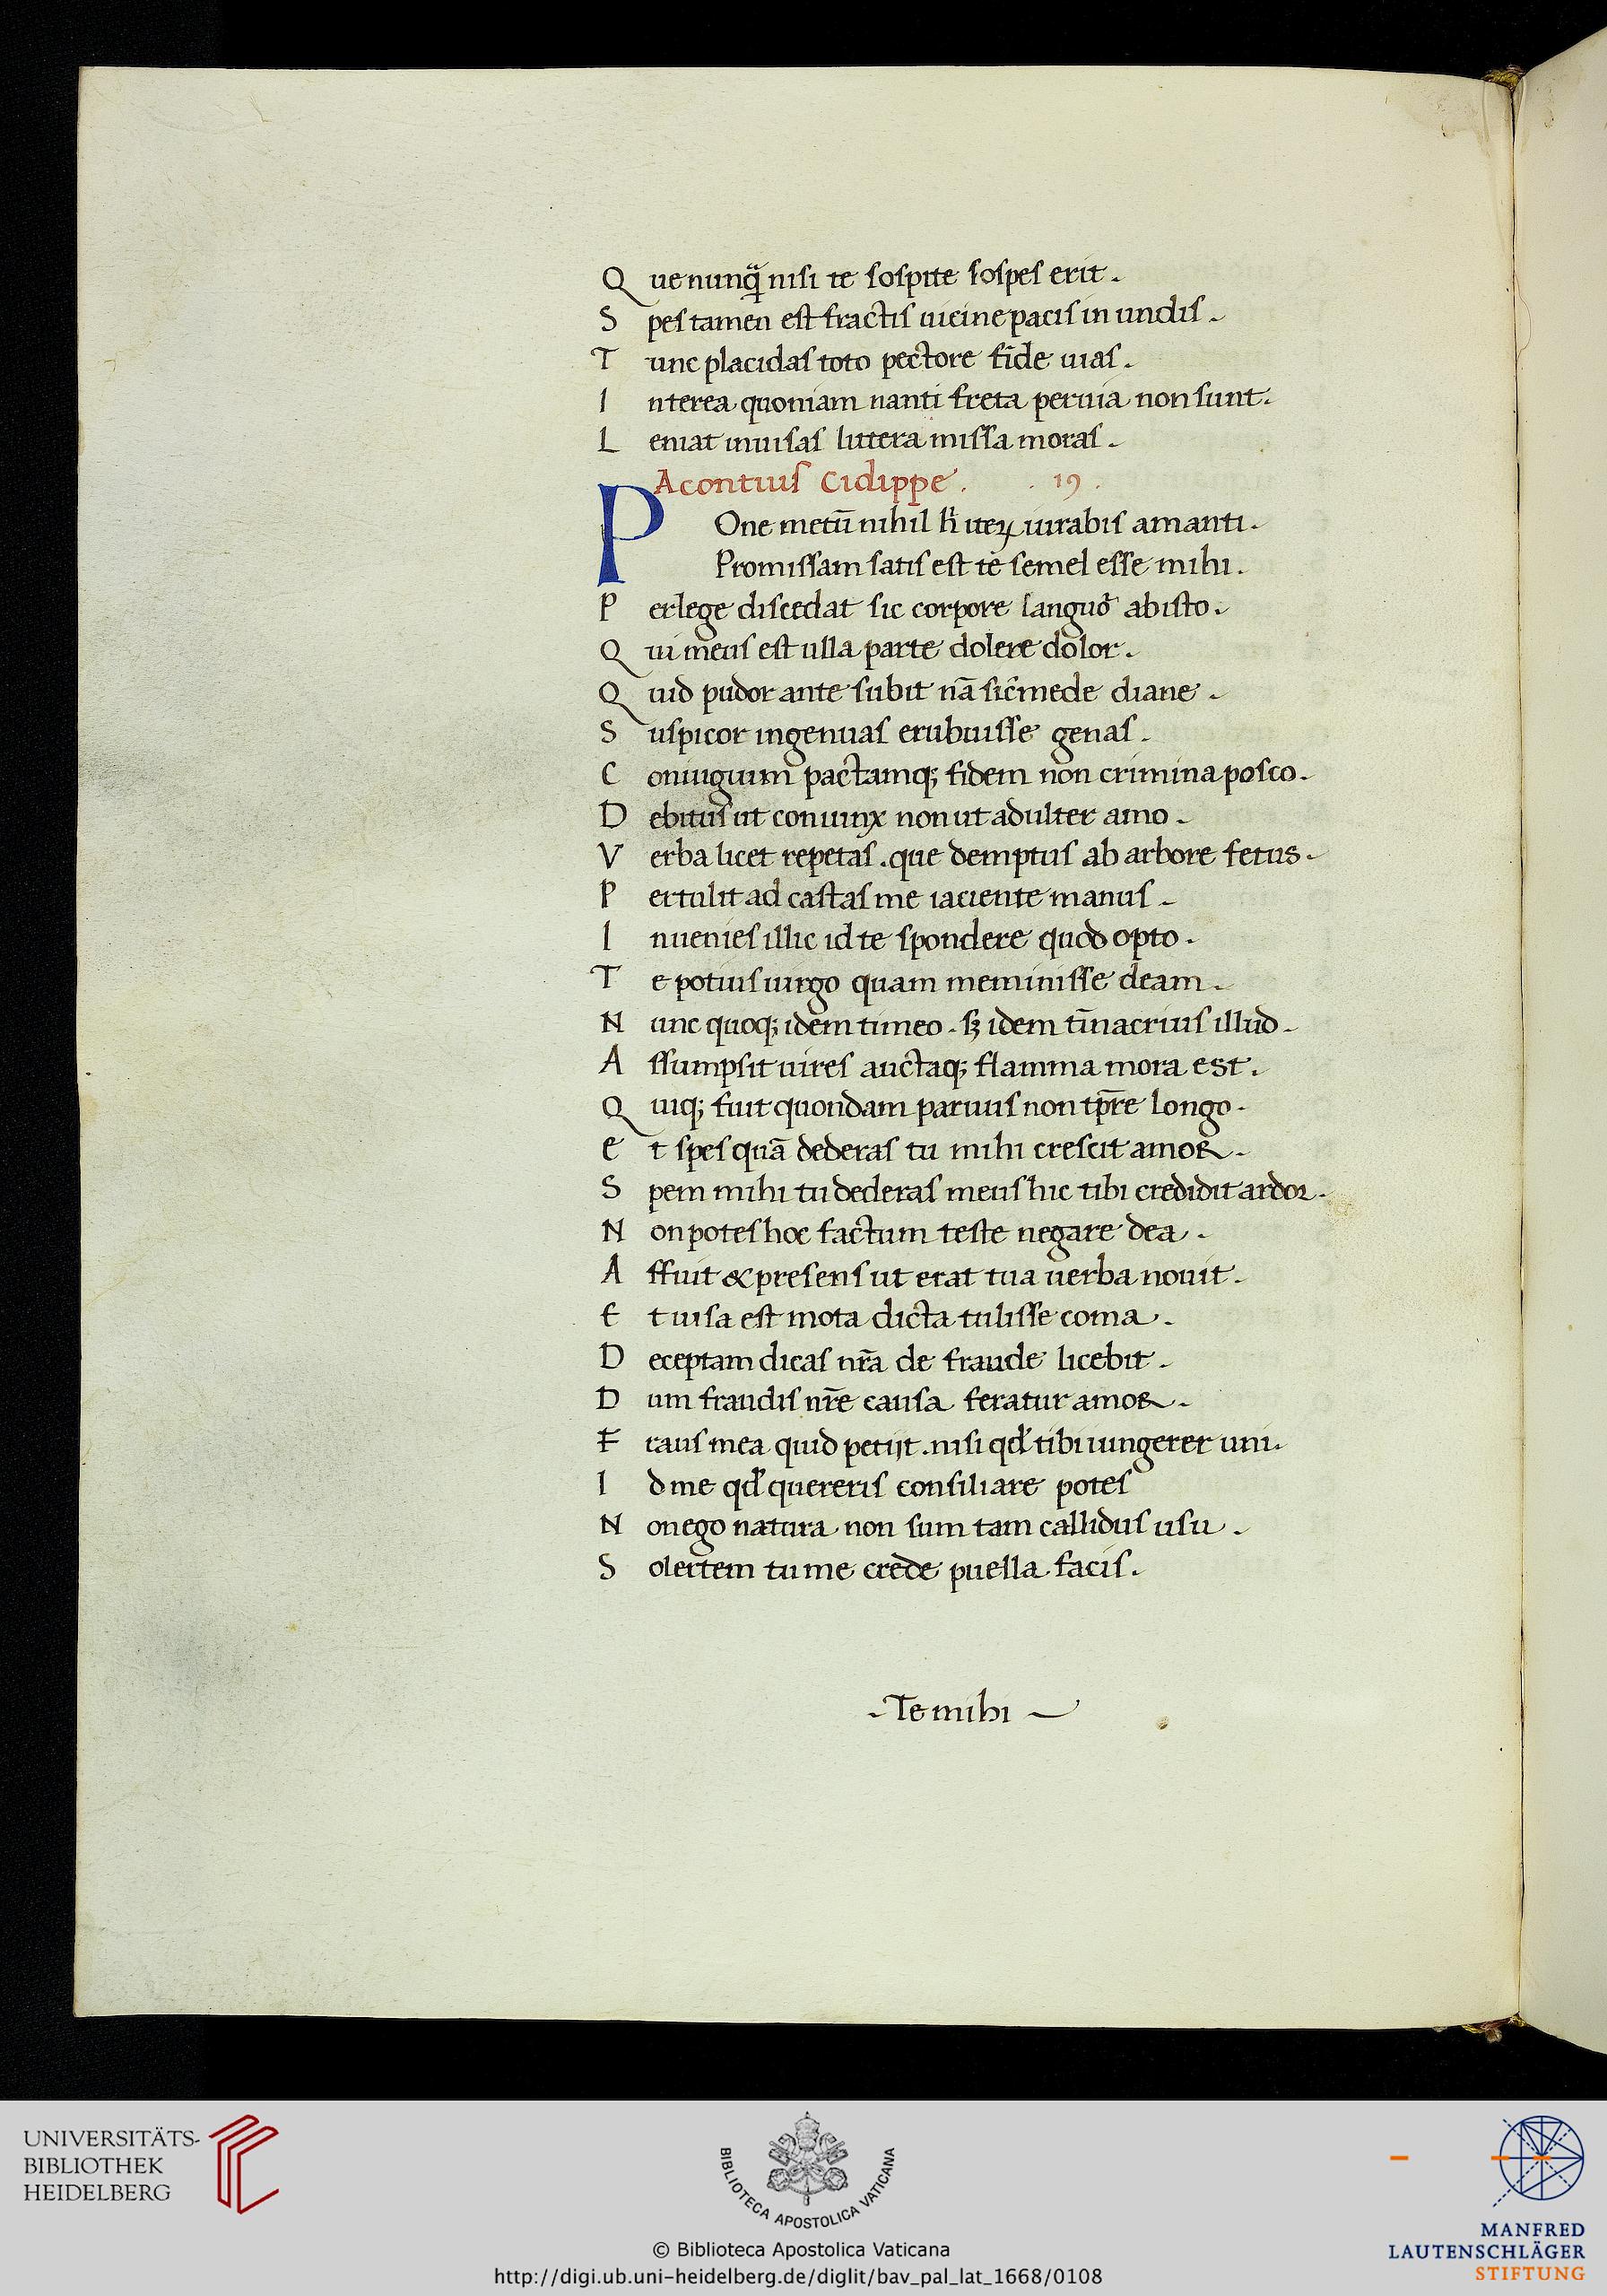 Que nunq̃ nisi te sospite sospes erit.
Spes tamen est fractis uicine pacis in undis.
Tunc placidas toto pectore finde uias.
Interea quoniam nanti freta peruia non sunt.
Leniat inuisas littera missa moras.
Acontius Cidippe. .19.
POne metū nihil h̄ iteꝝ iurabis amanti.
Promissam satis est te semel esse mihi.
Perlege discedat sic corpore languor ab isto.
Qui meus est ulla parte dolere dolor.
Quid pudor ante subit nā sic̄ mede diane.
Suspicor ingenuas erubuisse genas.
Coniugium pactamq; fidem non crimina posco.
Debitus ut coniunx non ut adulter amo.
Verba licet repetas. que demptus ab arbore fetus.
Pertulit ad castas me iaciente manus.
Inuenies illic id te spondere quod opto.
Te potius uirgo quam meminisse deam.
Nunc quoq; idem timeo. sꝫ idem tn̄ acrius illud.
Assumpsit uires auctaq; flamma mora est.
Quiq; fuit quondam paruus non tp̄re longo.
Et spes quā dederas tu mihi crescit amor.
Spem mihi tu dederas meus hic tibi credidit ardor.
Non potes hoc factum teste negare dea.
Affuit & presens ut erat tua uerba nouit.
Et uisa est mota dicta tulisse coma.
Deceptam dicas nr̄a de fraude licebit.
Dum fraudis nr̄e causa feratur amor.
Fraus mea quid petijt. nisi qd̛ tibi iungerer uni.
Id me qd̛ quereris consiliare potes
Non ego natura non sum tam callidus usu.
Solertem tu me crede puella facis.
-Te mihi-
UNIVERSITÄTS-
BIBLIOTHEK
HEIDELBERG
BIBLIOTECA APOSTOLICA VATICANA
© Biblioteca Apostolica Vaticana
http://digi.ub.uni-heidelberg.de/diglit/bav_pal_lat_1668/0108
MANFRED
LAUTENSCHLÄGER
STIFTUNG